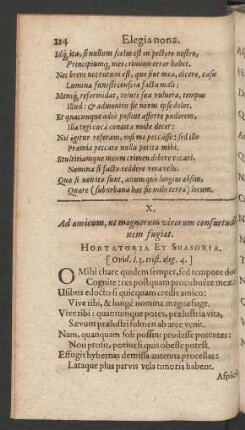 214 Elegia nona.
Idq́, ita, si nullum scelus est in pectore nostro,
Principiumq́, mei criminis error habet.
Nec breve nec tutum est, quo sint mea, dicere, casu
Lumina funesti conscia facta mali:
Mensq́, reformidat, veluti sua vulnera, tempus
Illud: & admonitu fit novus ipse dolor.
Et quacunque adeò possunt afferre pudorem,
Illa tegi caeca condita nocte decet:
Nil igitur referam, nisi me peccasse: sed illo
Praemia peccato nulla petita mihi.
Stultitiamque meum crimen debere vocari,
Nomina si facto reddere vera velis.
Quae si non ita sunt, alium quò longius absim,
Quaere (suburbana haec sit mihi terra) locum.
X.
Ad amicum, ut magnorum virorum consuetudi-
nem fugiat.
HORTATORIA ET SUASORIA.
[Ovid. l. 3. trist. eleg. 4.]
O Mihi chare quidem semper, sed tempore duro
Cognite: res postquam procubuêre meae:
Usibus edocto si quicquam credis amico:
Vive tibi, & longè nomina magna fuge.
Vive tibi: quantumque potes, praelustria vita,
Saevum praelustri fulmen ab arce venit.
Nam, quanquam soli possunt prodesse potentes:
Non prosit, potius si quis obesse potest.
Effugit hybernas demissa antenna procellas:
Lataque plus parvis vela timoris habent.